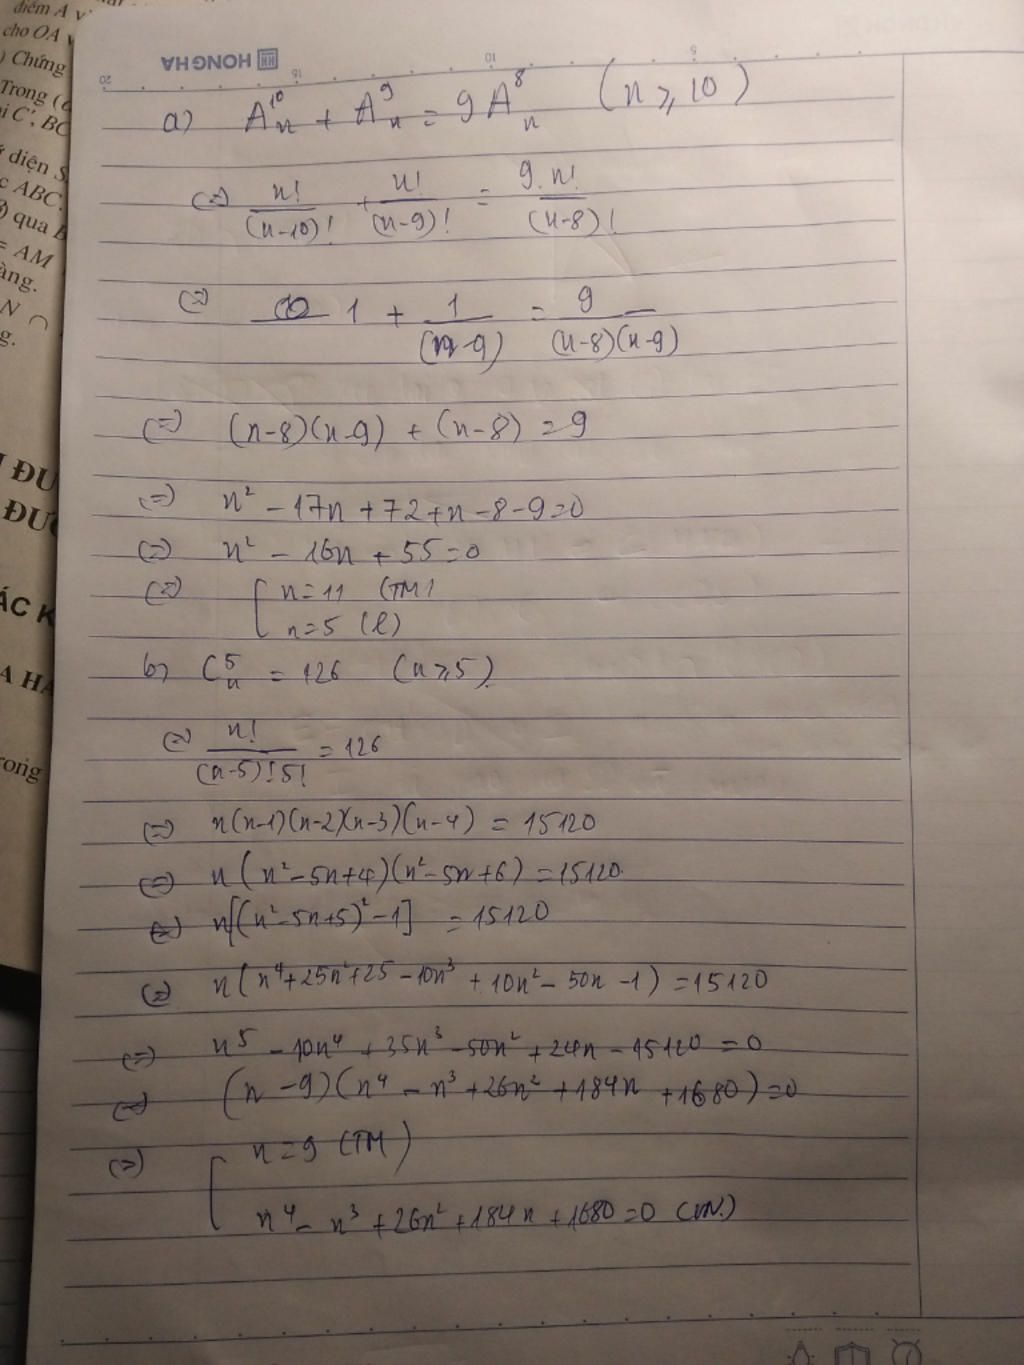 điểm A
cho OA
) Chứng
Trong (
i C', BC
diện S.
c ABC.
qua
= AM
àng.
N ∩
g.
I ĐƯ
ĐƯ
ÁC K
A HA
rong
HONG HA
20 15 10 5
a) A_n^10 + A_n^9 = 9 A_n^8 (n ⩾ 10)
(=) n!/(n-10)! + n!/(n-9)! = 9.n!/(n-8)!
(=) 1 + 1/(n-9) = 9/(n-8)(n-9)
(=) (n-8)(n-9) + (n-8) = 9
(=) n² - 17n + 72 + n - 8 - 9 = 0
(=) n² - 16n + 55 = 0
(=) [ n = 11 (TM)
n = 5 (l)
b) C_n^5 = 126 (n ⩾ 5).
(=) n!/(n-5)!5! = 126
(=) n(n-1)(n-2)(n-3)(n-4) = 15120
(=) n(n²-5n+4)(n²-5n+6) = 15120.
(=) n[(n²-5n+5)²-1] = 15120
(=) n(n⁴+25n²+25-10n³+10n²-50n-1) = 15120
(=) n⁵ - 10n⁴ + 35n³ - 50n² + 24n - 15120 = 0
(=) (n-9)(n⁴ - n³ + 26n² + 184n + 1680) = 0
(=) [ n = 9 (TM)
n⁴ - n³ + 26n² + 184n + 1680 = 0 (VN.)